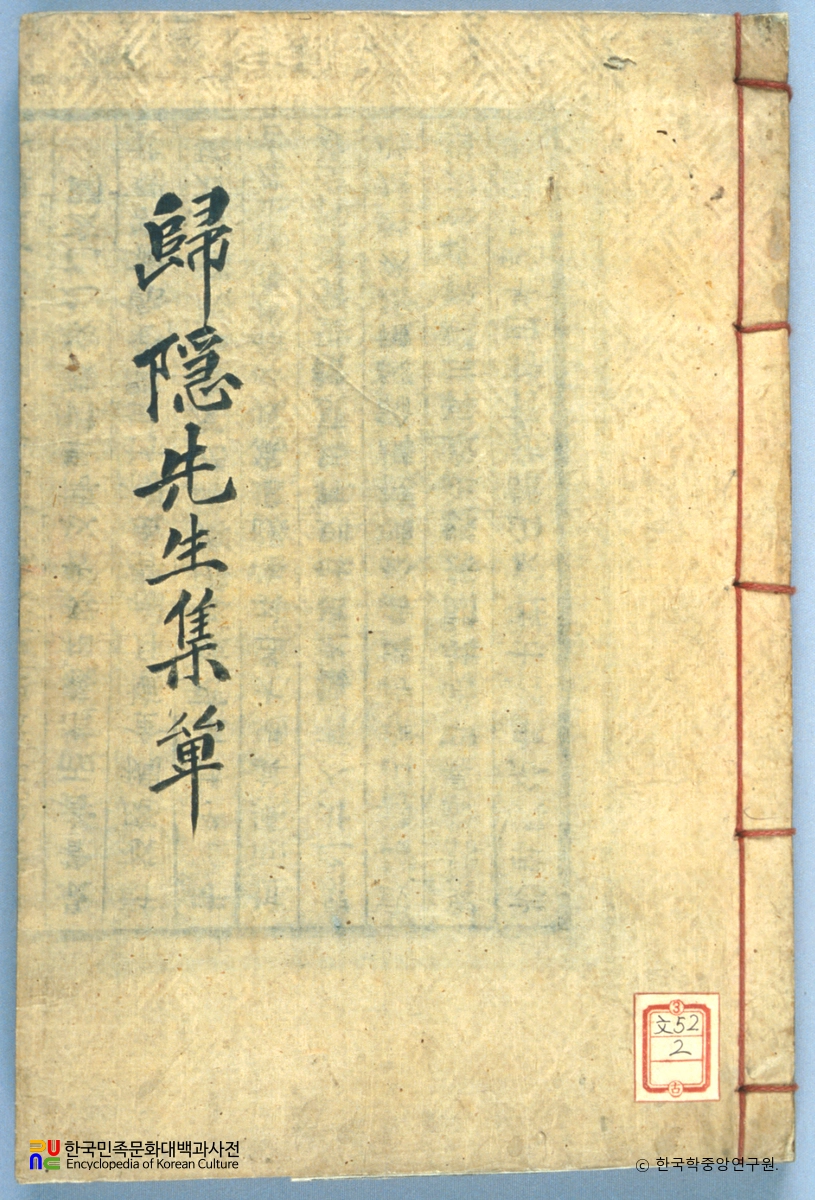 歸隱先生集單
③
文52
2
古
한국민족문화대백과사전
Encyclopedia of Korean Culture
© 한국학중앙연구원.